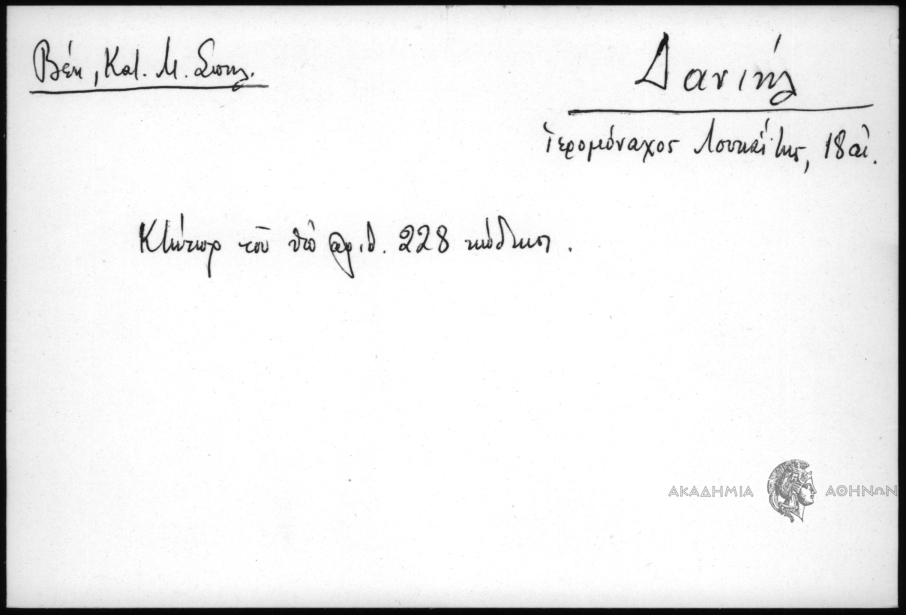 Βέη, Κατ. Μ. Σπηλ.
Δανιήλ
ἱερομόναχος Λουκαΐτης, 18 αἰ.
Κτήτωρ τοῦ ὑπὸ ἀριθ. 228 κώδικος.
ΑΚΑΔΗΜΙΑ ΑΘΗΝΩΝ